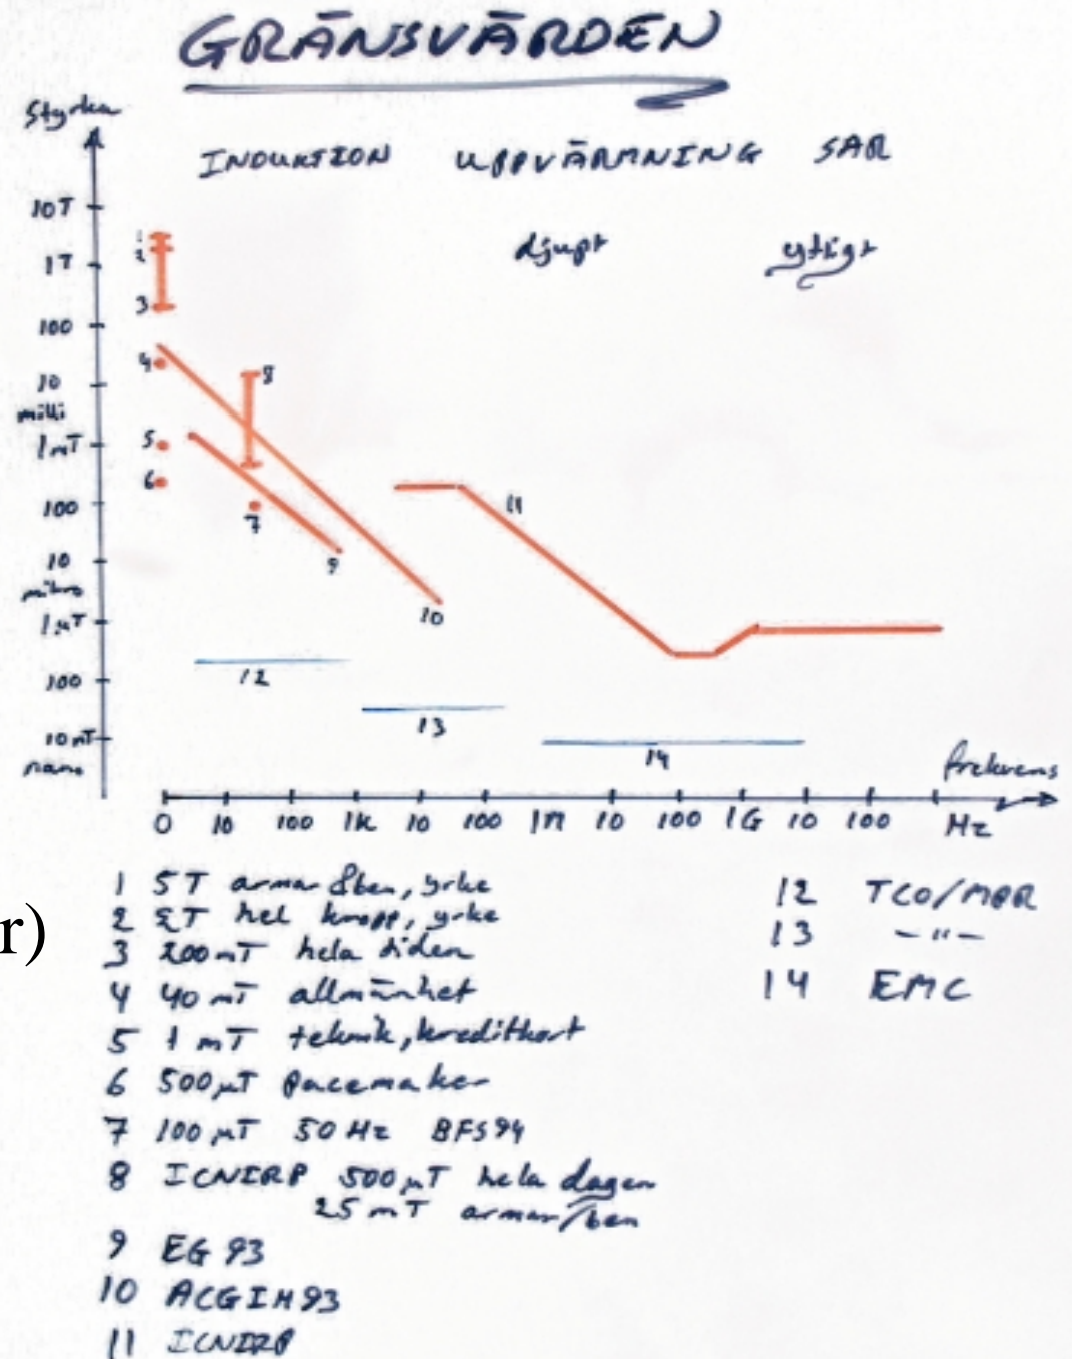 GRÄNSVÄRDEN
Styrka
INDUKTION UPPVÄRMNING SAR
djupt ytligt
10T
1T
100
10
milli
1mT
100
10
mikro
1µT
100
10nT
nano
1
2
3
4
5
6
7
8
9
10
11
12
13
14
frekvens
0 10 100 1k 10 100 1M 10 100 1G 10 100 Hz
r)
1 5T armar &ben, yrke
2 2T hel kropp, yrke
3 200mT hela tiden
4 40 mT allmänhet
5 1 mT teknik, kreditkort
6 500µT pacemaker
7 100µT 50 Hz BFS94
8 ICNIRP 500µT hela dagen
25 mT armar/ben
9 EG 93
10 ACGIH93
11 ICNIRP
12 TCO/MPR
13 -"-
14 EMC